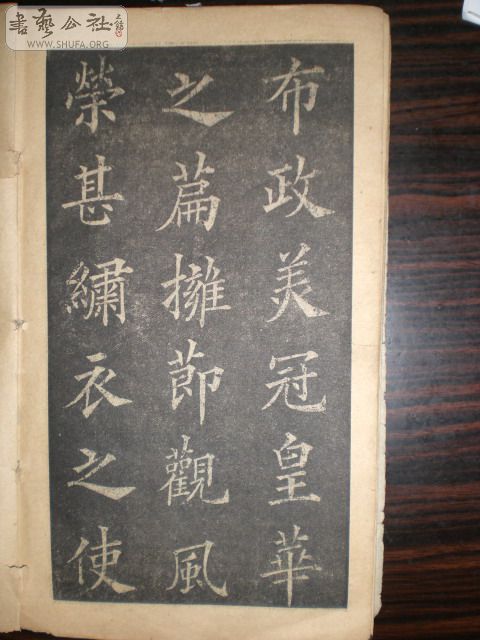 布政美冠皇華
之篇擁節觀風
榮甚繡衣之使
書藝公社
WWW.SHUFA.ORG